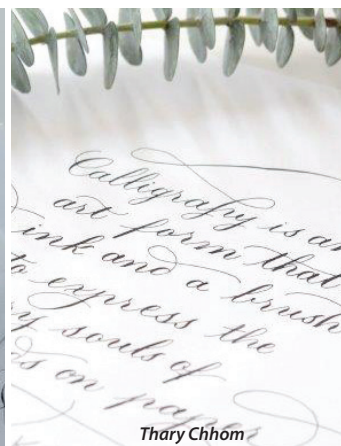 Calligrafy is an
art form that
ink and a brush
to express the
y souls of
ds on paper
Thary Chhom